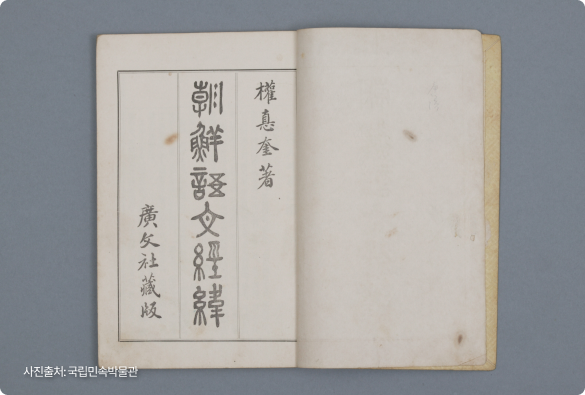 權悳奎 著
朝鮮語文經緯
廣文社藏版
사진출처: 국립민속박물관